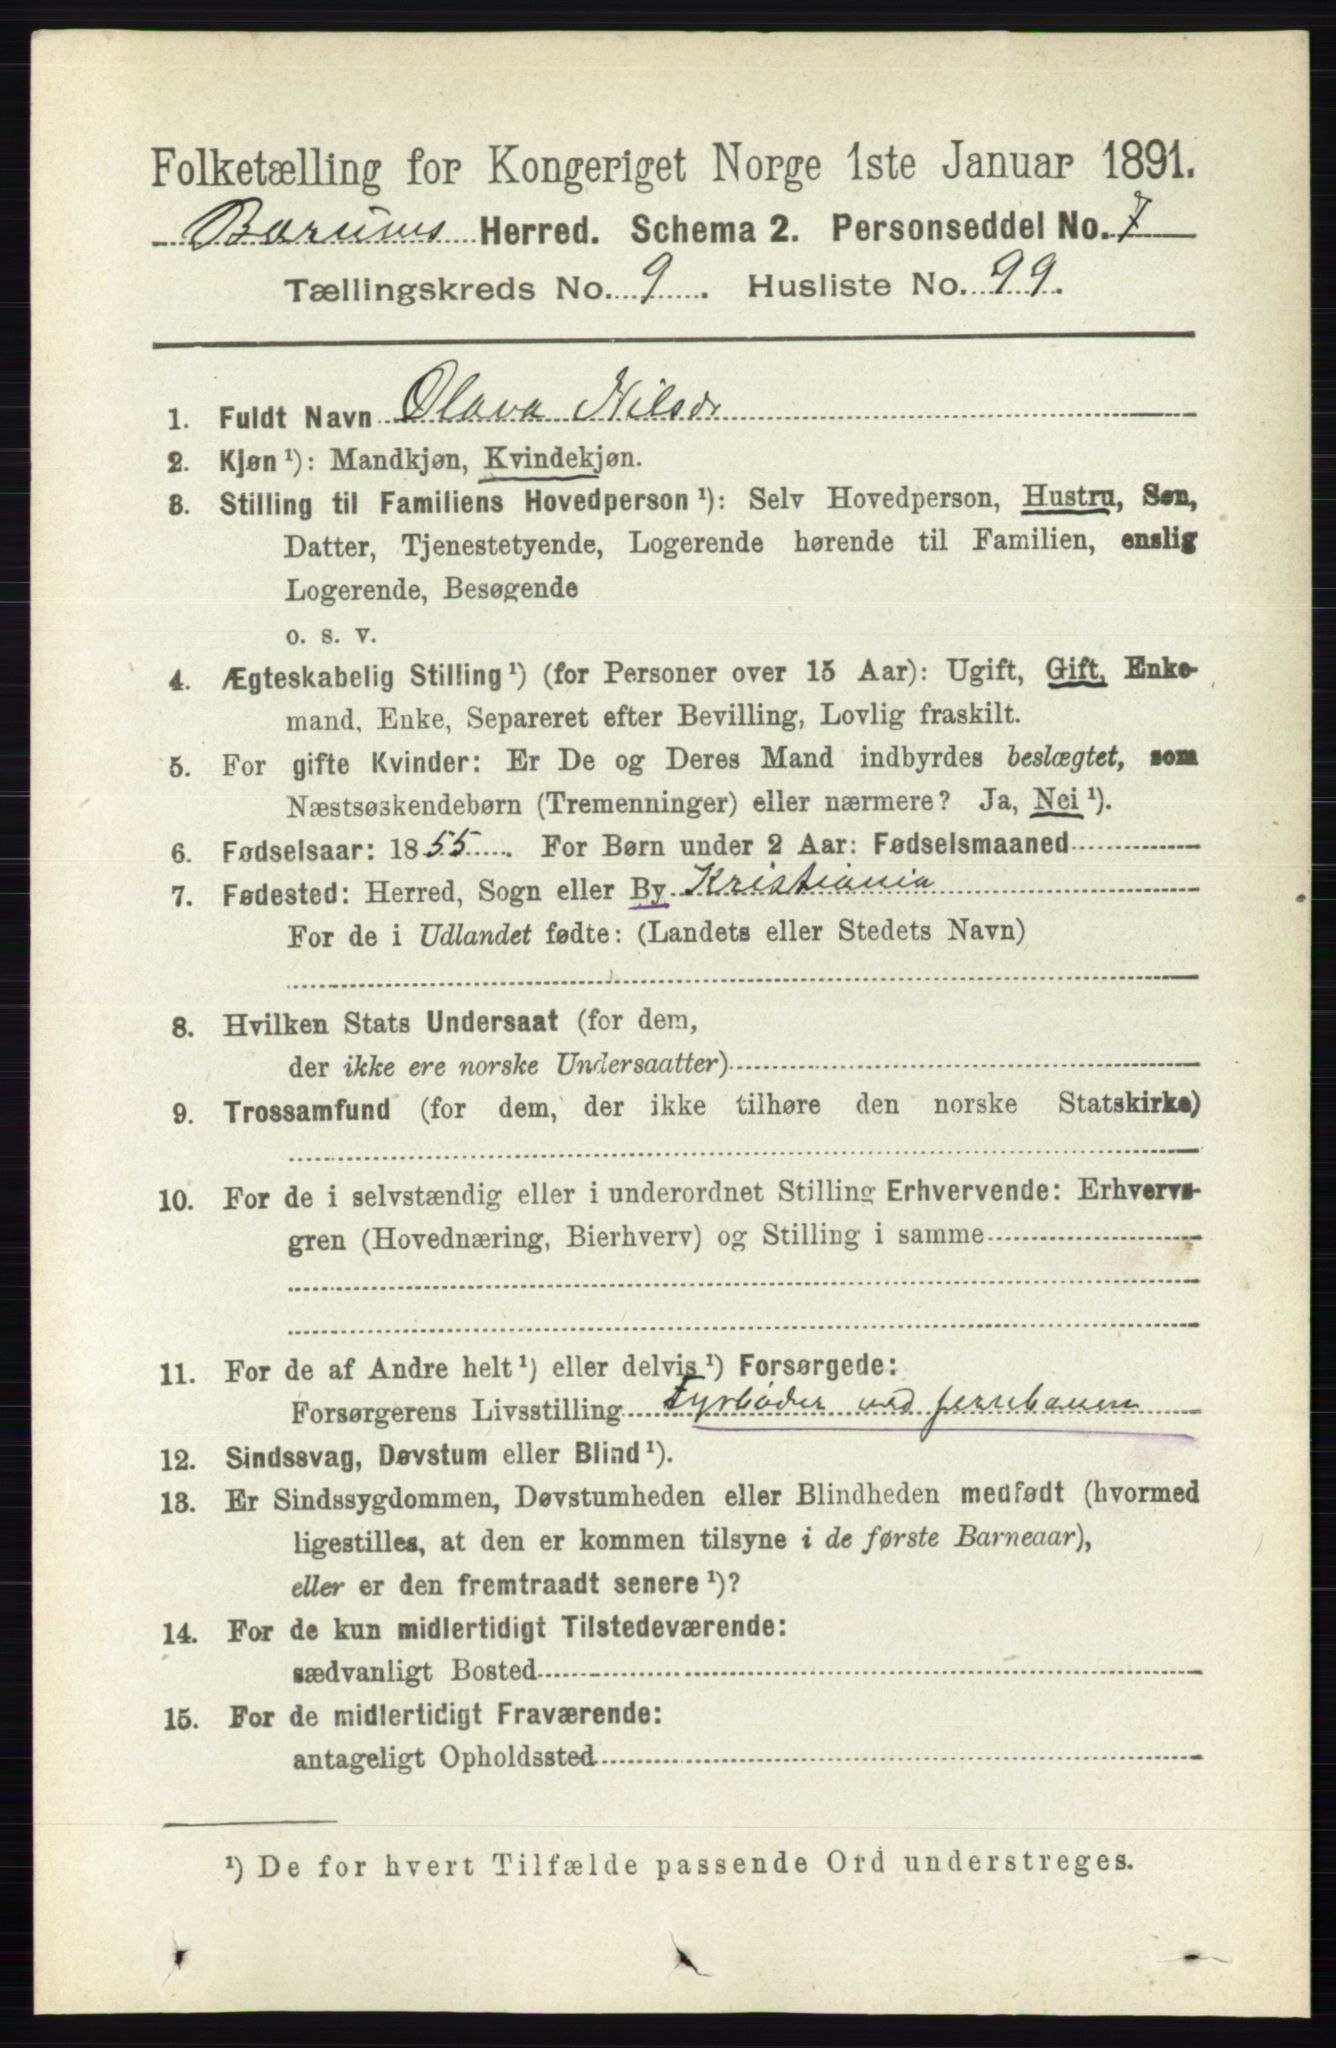 Folketælling for Kongeriget Norge 1ste Januar 1891.
Bærums Herred. Schema 2. Personseddel No. 7
Tællingskreds No. 9. Husliste No. 99.
1. Fuldt Navn Olava Nilsdr
2. Kjøn ¹): Mandkjøn, Kvindekjøn.
3. Stilling til Familiens Hovedperson ¹): Selv Hovedperson, Hustru, Søn,
Datter, Tjenestetyende, Logerende hørende til Familien, enslig
Logerende, Besøgende
o. s. v.
4. Ægteskabelig Stilling ¹) (for Personer over 15 Aar): Ugift, Gift, Enke-
mand, Enke, Separeret efter Bevilling, Lovlig fraskilt.
5. For gifte Kvinder: Er De og Deres Mand indbyrdes beslægtet, som
Næstsøskendebørn (Tremenninger) eller nærmere? Ja, Nei ¹).
6. Fødselsaar: 1855. For Børn under 2 Aar: Fødselsmaaned
7. Fødested: Herred, Sogn eller By Kristiania
For de i Udlandet fødte: (Landets eller Stedets Navn)
8. Hvilken Stats Undersaat (for dem,
der ikke ere norske Undersaatter)
9. Trossamfund (for dem, der ikke tilhøre den norske Statskirke)
10. For de i selvstændig eller i underordnet Stilling Erhvervende: Erhvervs-
gren (Hovednæring, Bierhverv) og Stilling i samme
11. For de af Andre helt ¹) eller delvis ¹) Forsørgede:
Forsørgerens Livsstilling Fyrbøder ved Jernbanen
12. Sindssvag, Døvstum eller Blind ¹).
13. Er Sindssygdommen, Døvstumheden eller Blindheden medfødt (hvormed
ligestilles, at den er kommen tilsyne i de første Barneaar),
eller er den fremtraadt senere ¹)?
14. For de kun midlertidigt Tilstedeværende:
sædvanligt Bosted
15. For de midlertidigt Fraværende:
antageligt Opholdssted
¹) De for hvert Tilfælde passende Ord understreges.